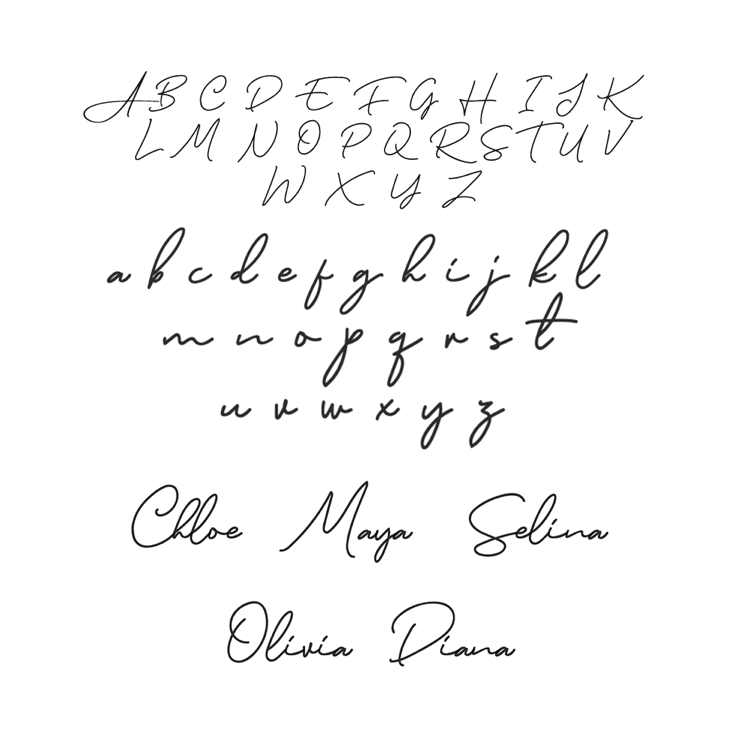 A B C D E F G H I J K
L M N O P Q R S T U V
W X Y Z
a b c d e f g h i j k l
m n o p q r s t
u v w x y z
Chloe Maya Selina
Olivia Diana